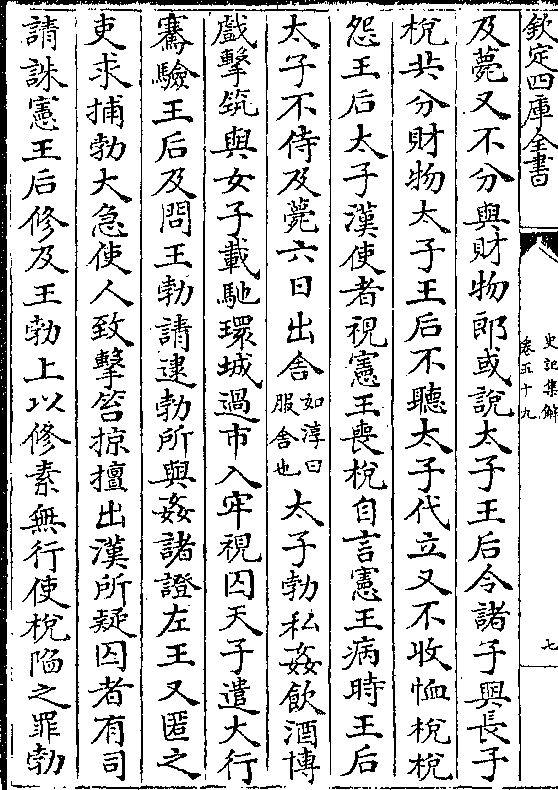 欽定四庫全書
史記集解
卷五十九
七
及薨又不分與財物郎或說太子王后令諸子與長子
梲共分財物太子王后不聽太子代立又不收恤梲梲
怨王后太子漢使者視憲王喪梲自言憲王病時王后
太子不侍及薨六日出舍如淳曰服舍也太子勃私姦飲酒博
戲擊筑與女子載馳環城過市入牢視囚天子遣大行
騫驗王后及問王勃請逮勃所與姦諸證左王又匿之
吏求捕勃大急使人致擊笞掠擅出漢所疑囚者有司
請誅憲王后修及王勃上以修素無行使梲陷之罪勃